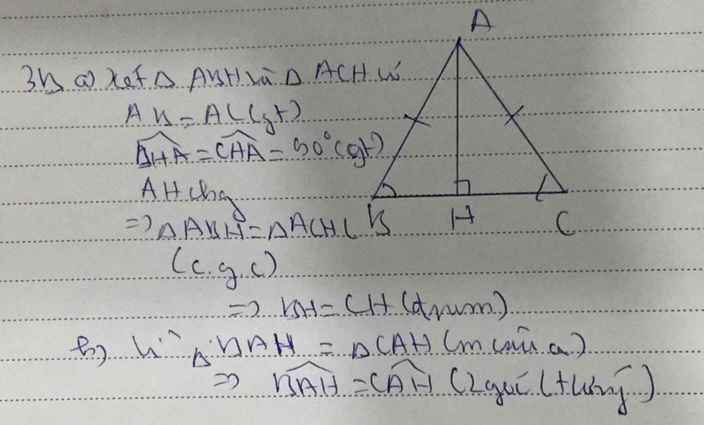 A
3B a) Xét Δ ABH và Δ ACH có
AB = AC (gt)
BHA = CHA = 90° (gt)
AH chg
=> Δ ABH = Δ ACH (
B H C
(c.g.c)
=> BH = CH (đpcm)
b) Vì Δ BAH = Δ CAH (m câu a)
=> BAH = CAH (2 góc t/ứng)